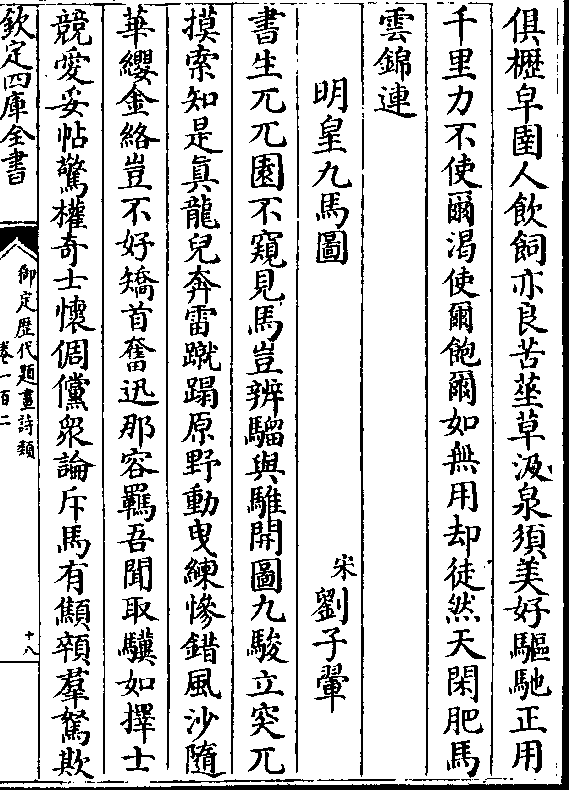 俱櫪皁圉人飲飼亦良苦莝草汲泉須美好驅馳正用
千里力不使爾渴使爾飽爾如無用却徒然天閑肥馬
雲錦連
明皇九馬圖
宋劉子翬
書生兀兀園不窺見馬豈辨騮與騅開圖九駿立突兀
摸索知是真龍兒奔雷蹴蹋原野動曳練慘錯風沙隨
華纓金絡豈不好矯首奮迅那容羈吾聞取驥如擇士
競愛妥帖驚權奇士懷倜儻衆論斥馬有顯顙羣駑欺
欽定四庫全書
御定歷代題畫詩類
卷一百二
十八